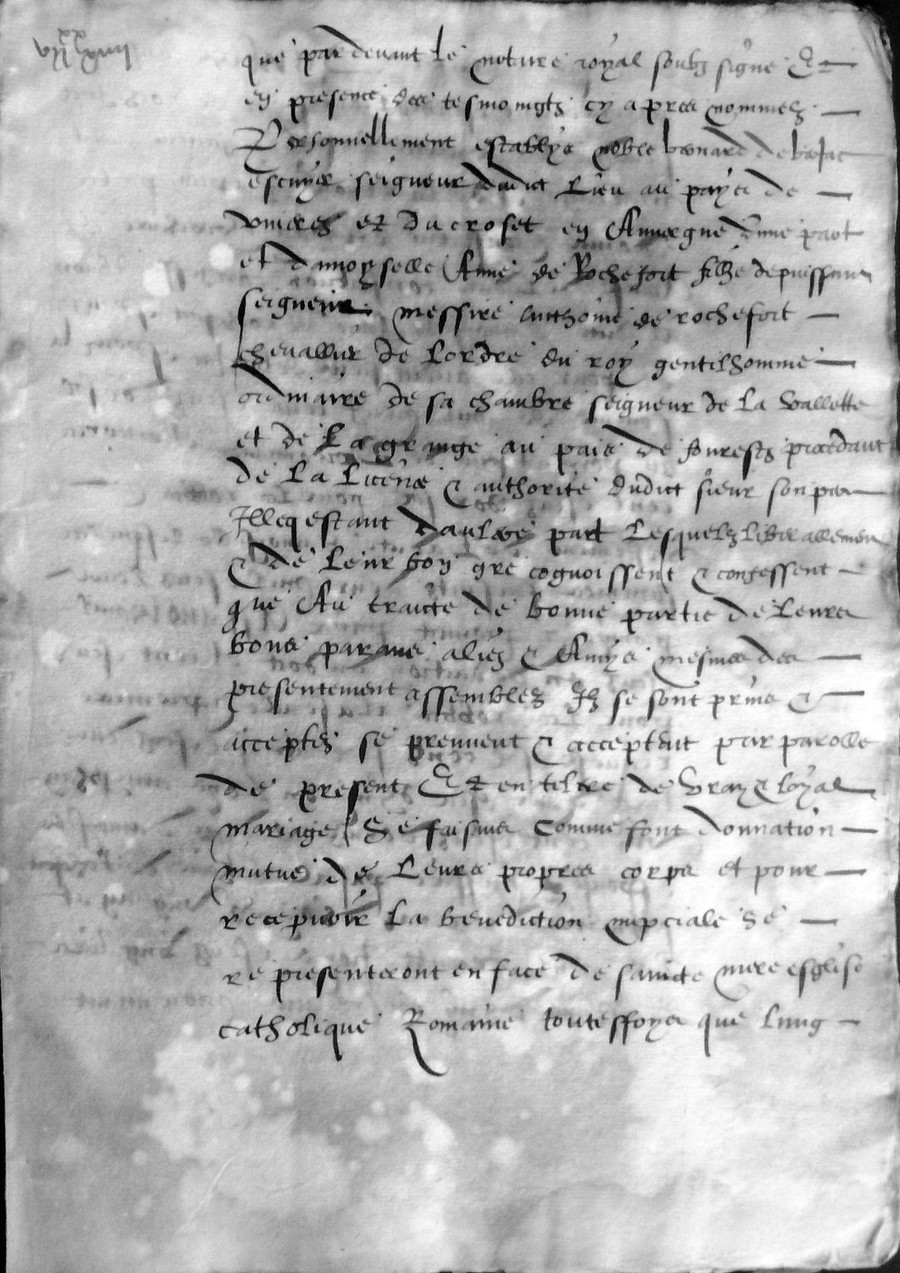 que par devant le notaire royal soubz signe Et
en presence des tesmoingtz cy apres nommez
Personnellement establys noble bernard de
escuyer seigneur dudict Lieu au pays de
et du croset en Auvergne dune part
et damoyselle Anne de Rochefort fille de puissant
seigneur messire anthoine de rochefort
chevallier de Lordre du roy gentilhomme
ordinaire de sa chambre seigneur de La Vallette
et de La grange au pais de fourestz procedant
de La Licence & authorite dudict sieur son pere
Illeq estant daultre part Lesquelz liberallement
& de Leur bon gre cognoissent & confessent
que Au traicte de bonne partie de Leurs
bons parans aliez & Amys mesmes des
presentement assemblez Ilz se sont prins &
acceptez se prennent & acceptent par parolle
de present Et en tiltre de vray & loyal
mariage Se faisans comme font donnation
mutue de Leurs propres corps et pour
recepvoir La benediction nupciale Se
representeront en face de saincte mere esglise
catholique Romaine touteffoys que lung